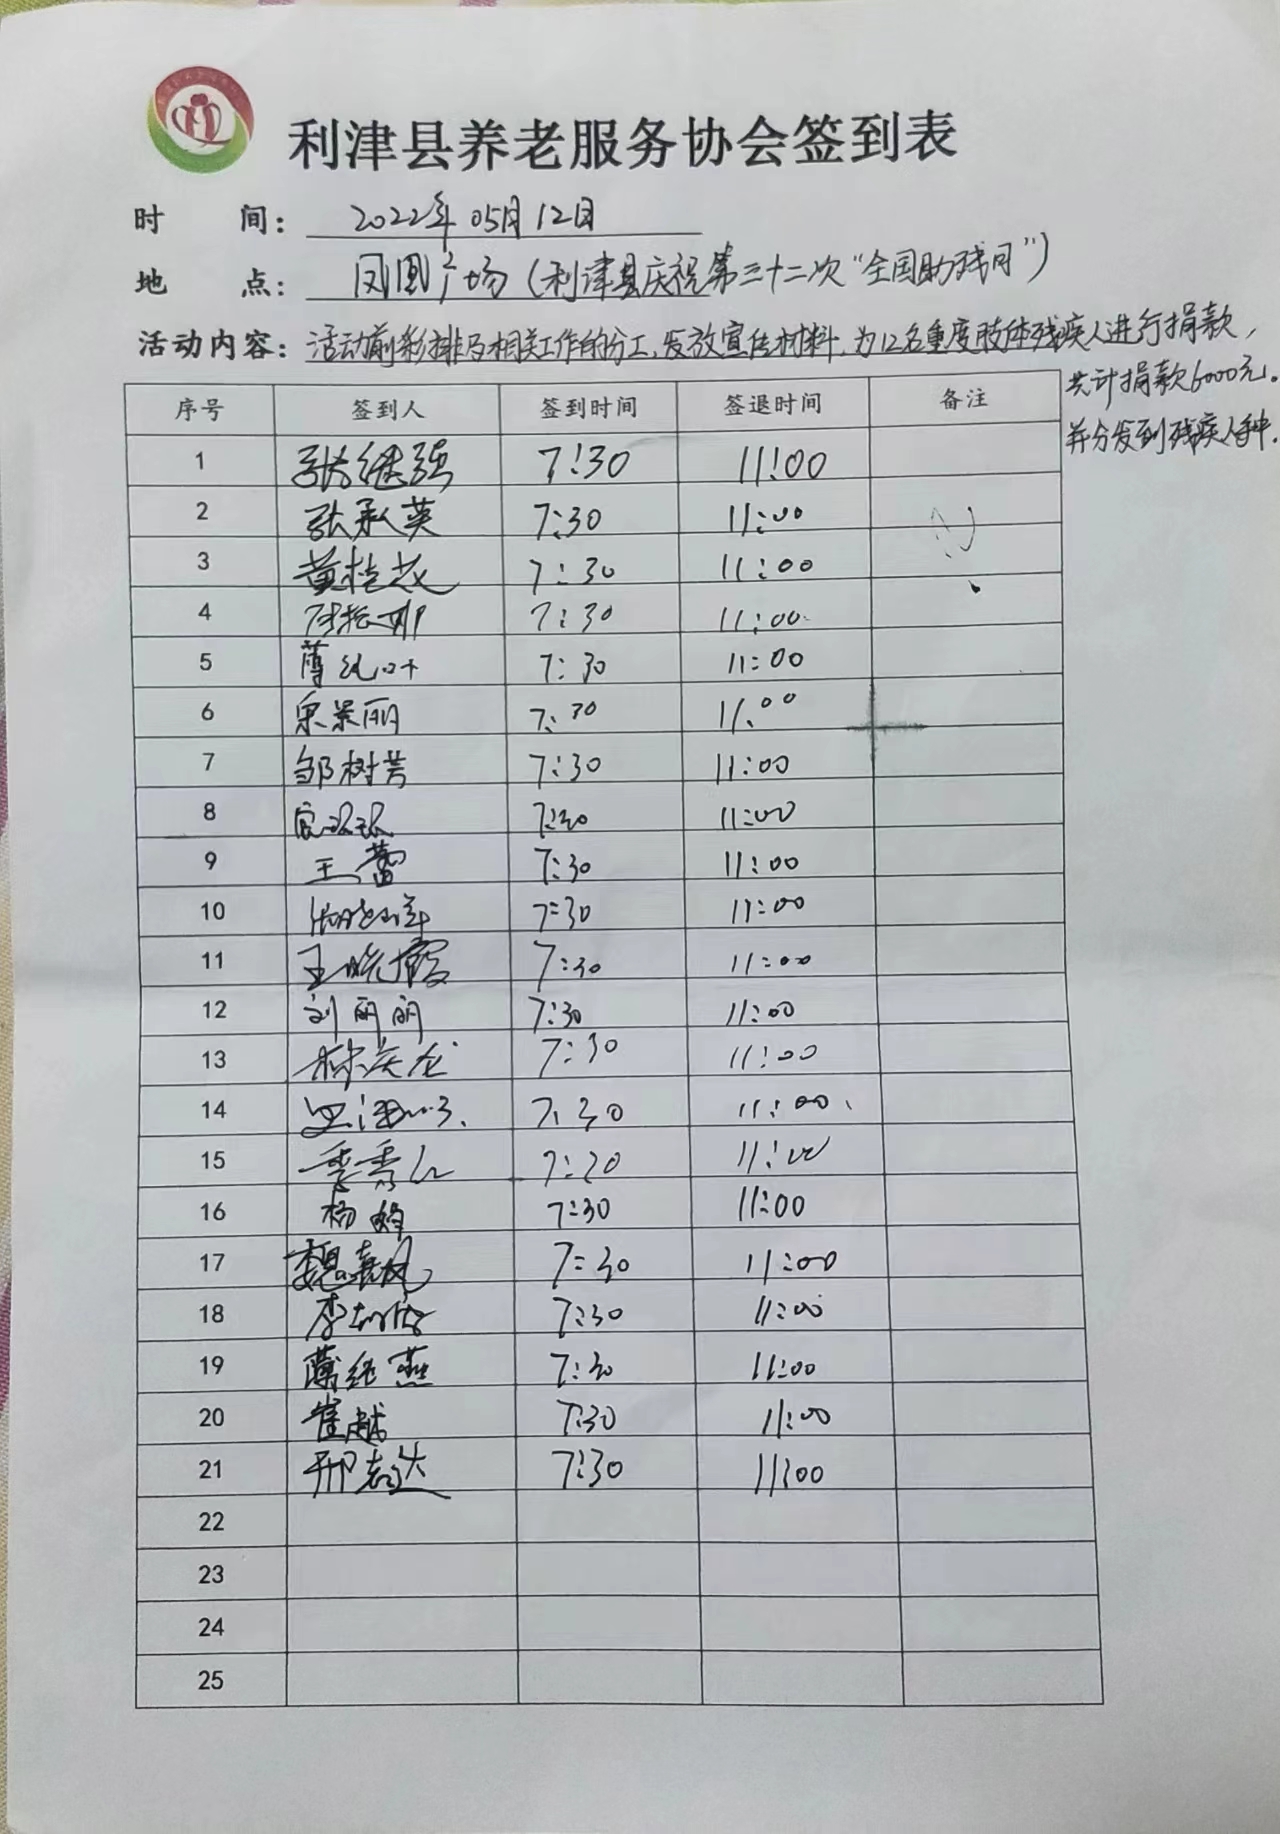 利津县养老服务协会签到表
时 间： 2022年05月12日
地 点： 凤凰广场（利津县庆祝第三十二次“全国助残日”）
活动内容：活动前彩排及相关工作的分工、发放宣传材料、为12名重度肢体残疾人进行捐款，
共计捐款6000元。
并分发到残疾人手中.
序号 签到人 签到时间 签退时间 备注
1 张继强 7:30 11:00
2 张承英 7:30 11:00
3 黄桂花 7:30 11:00
4 7:30 11:00
5 7:30 11:00
6 宋景丽 7:30 11:00
7 邹树芳 7:30 11:00
8 7:30 11:00
9 王蕾 7:30 11:00
10 7:30 11:00
11 王晓霞 7:30 11:00
12 刘丽丽 7:30 11:00
13 7:30 11:00
14 7:30 11:00
15 季秀 7:20 11:00
16 杨 7:30 11:00
17 魏春凤 7:30 11:00
18 李 7:30 11:00
19 薄纯燕 7:30 11:00
20 崔越 7:30 11:00
21 邢志达 7:30 11:00
22
23
24
25